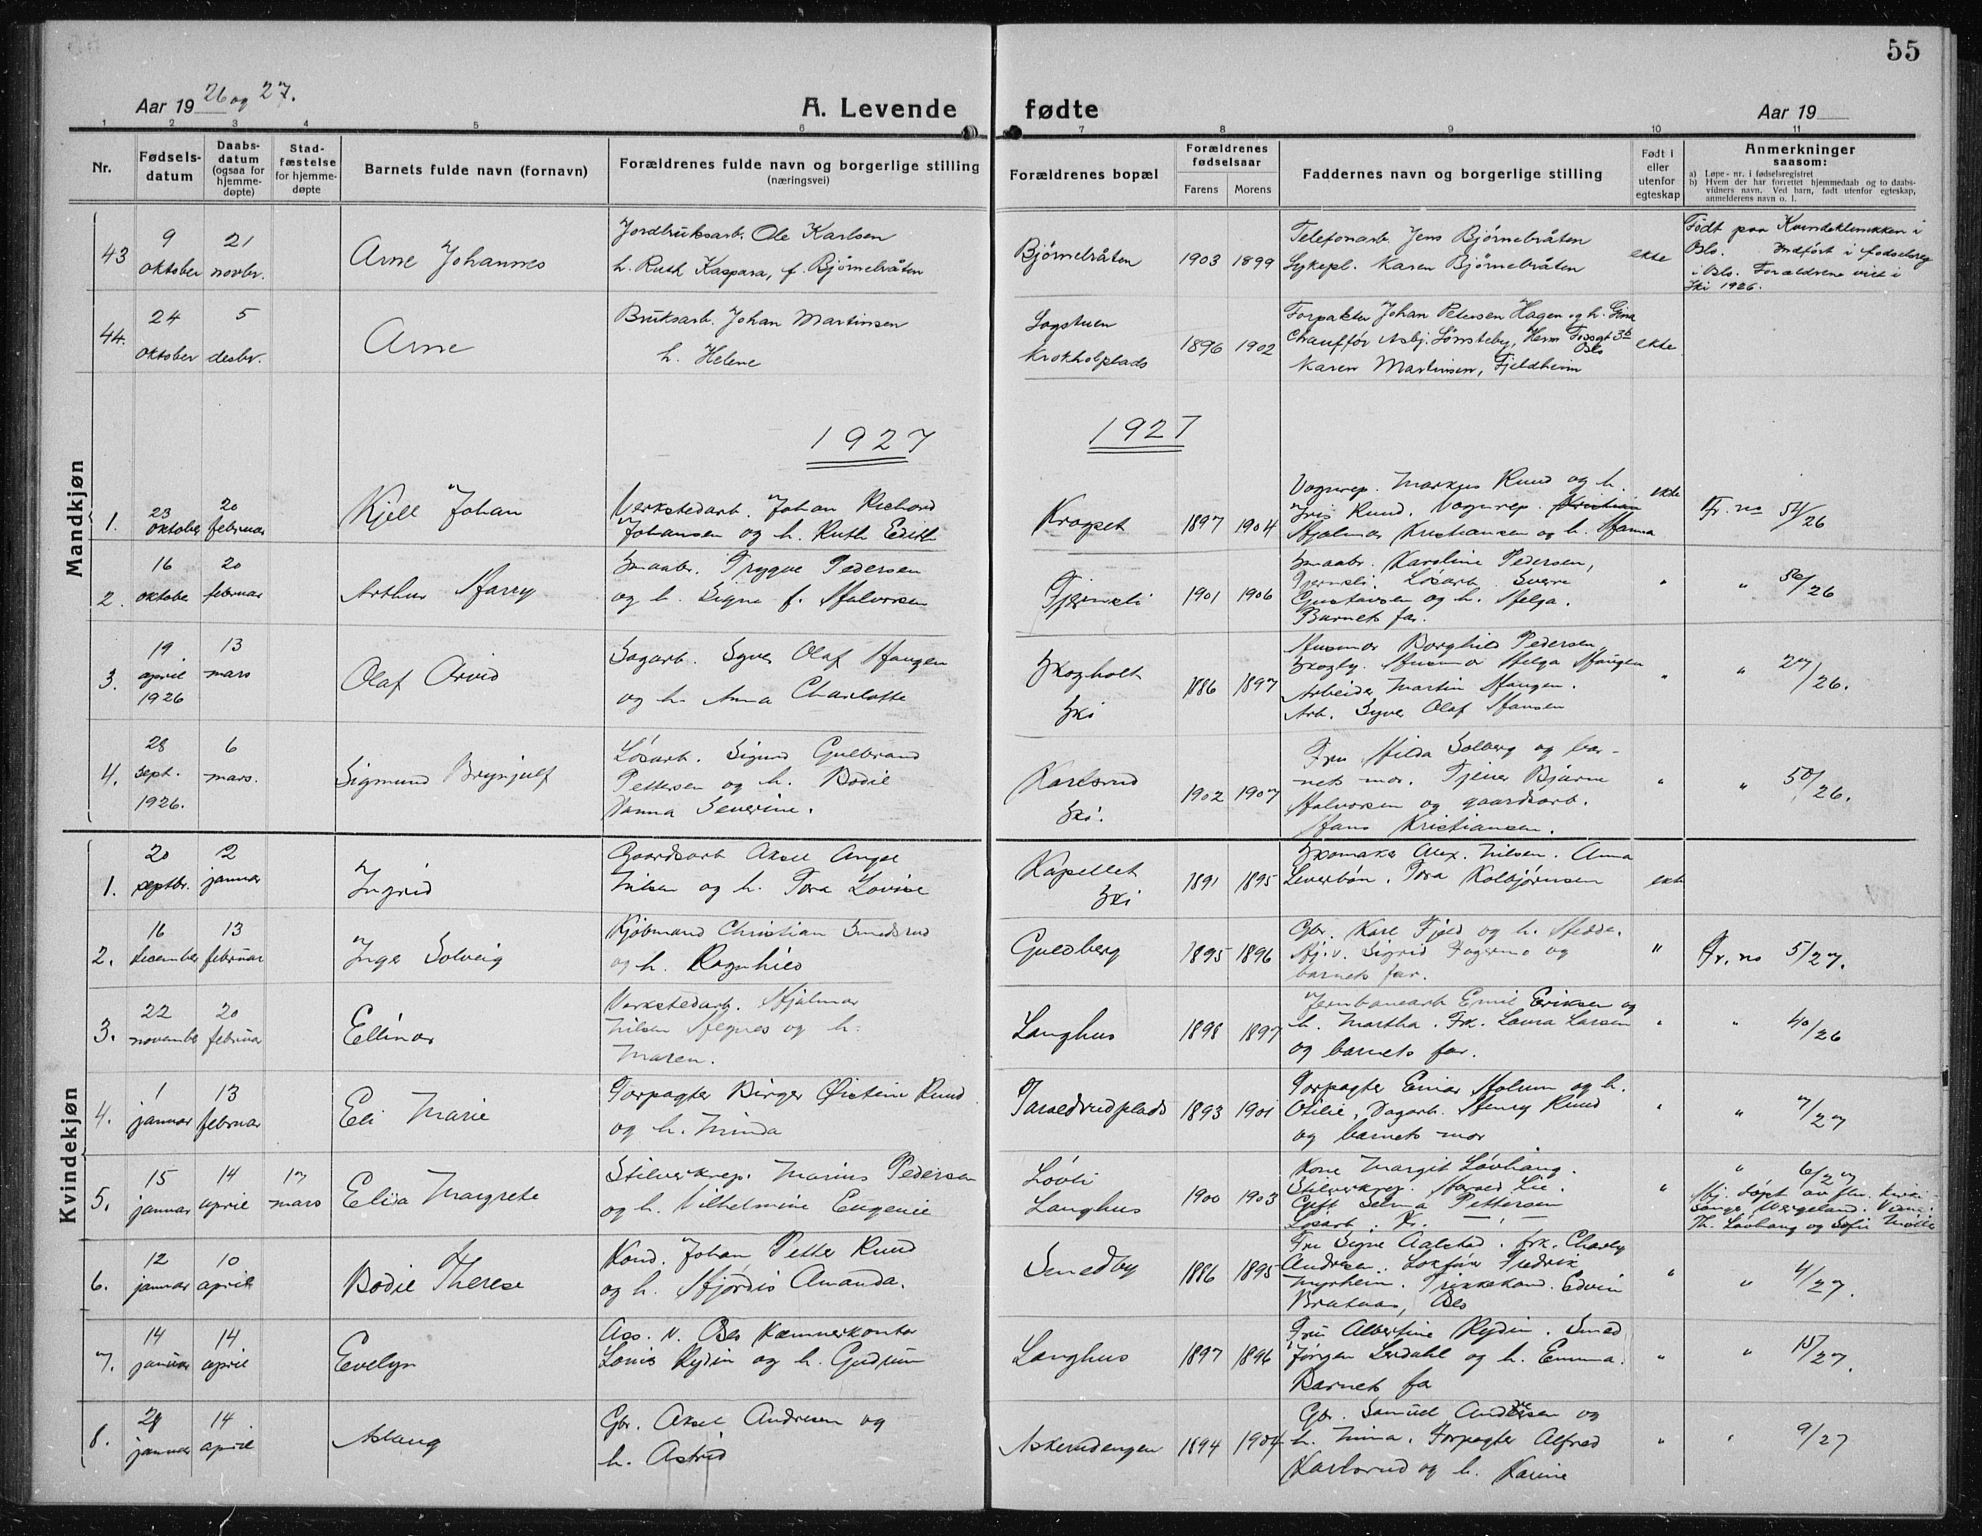 55
Aar 19 26 og 27.
A. Levende fødte
Aar 19
1 2 3 4 5 6 7 8 9 10 11
Nr.
Fødsels-
datum
Daabs-
datum
(ogsaa for
hjemme-
døpte)
Stad-
fæstelse
for hjemme-
døpte
Barnets fulde navn (fornavn)
Forældrenes fulde navn og borgerlige stilling
(næringsvei)
Forældrenes bopæl
Forældrenes
fødselsaar
Farens Morens
Faddernes navn og borgerlige stilling
Født i
eller
utenfor
egteskap
Anmerkninger
saasom:
a) Løpe-nr. i fødselsregistret
b) Hvem der har forrettet hjemmedaab og to daabs-
vidners navn. Ved barn, født utenfor egteskap,
anmelderens navn o. l.
Mandkjøn
43
9
oktober
21
novbr.
Arne Johannes
Jordbruksarb. Ole Karlsen
h. Ruth Kaspara, f. Bjørnebråten
Bjørnebråten
1903 1899
Telefonarb. Jens Bjørnebråten
Sykepl. Karen Bjørnebråten
ekte
Født paa Kvindeklinikken i
Oslo. Indført i fødselsreg
i Oslo. Forældrene viet i
Ski 1926.
44.
24
oktober
5
desbr.
Arne
Bruksarb. Johan Martinsen
h. Helene
Sagstuen
Krokholplads
1896 1902
Forpakter Johan Petersen Hagen og h. Gina
Chauffør Asbj. Sønsteby, Herm Fossgt 3b
Oslo
Karen Martinsen, Fjeldheim
ekte
1927
1927
1.
23
oktober
20
februar
Kjell Johan
Verkstedarb. Johan Richard
Johansen og h. Ruth Edith
Krogset
1897 1904
Vognrep. Markus Ruud og h.
Iris Ruud. Vognrep. Kristian
Hjalmar Kristiansen og h. Hanna
ekte
Fr. no 54/26
2.
16
oktobe
20
februar
Arthur Harry
Smaabr. Trygve Pedersen
og h. Signe f. Halvorsen
Tjernsli
1901 1906
Smaabr. Karoline Pedersen,
Tjernsli. Løsarb. Sverre
Gustavsen og h. Helga.
Barnets far.
"
" 56/26
3.
19
april
1926
13
mars
Olaf Arvid
Sagarb. Syver Olaf Haugen
og h. Anna Charlotte
Skogholt
Ski
1886 1897
Husmor Borghild Pedersen
Skogly. Husmor Helga Haugen
Arbeider Martin Haugen.
Arb. Syver Olaf Hansen
"
" 27/26.
4.
28
sept.
1926.
6
mars.
Sigmund Brynjulf
Løsarb. Sigurd Gulbrand
Pettersen og h. Bodil
Nanna Severine.
Karlsrud
Ski.
1902 1907
Fru Hilda Solberg og bar-
nets mor. Tjener Bjarne
Halvorsen og gaardsarb.
Hans Kristiansen.
"
" 50/26.
Kvindekjøn
1.
20
septbr.
2
januar
Ingrid
Gaardsarb Aksel Angel
Nilsen og h. Tora Lovise
Kapellet
Ski
1891 1895
Skomaker Alex. Nilsen. Anna
Leverbøn. Tora Kolbjørnsen
ekte
2.
16
december
13
februar
Inger Solveig
Kjøbmand Christian Smedsrud
og h. Ragnhild
Guldberg
1895 1896
Gbr. Karl Fjeld og h. Hedda.
Hj.v. Sigrid Fagermo og
barnets far.
"
Fr. no 5/27.
3.
22
november
20
februar
Ellinor
Verkstedarb. Hjalmar
Nilsen Hegnes og h.
Maren.
Langhus
1898 1897
Jernbanearb Emil Eriksen og
h. Martha. Frk. Laura Larsen
og barnets far.
"
" 40/26
4.
1
januar
13
februar
Eli Marie
Forpagter Birger Øistein Ruud
og h. Minda
Taraldrudplads
1893 1901
Forpagter Einar Holum og h.
Otilie, Dagarb. Henry Ruud
og barnets mor
"
" 7/27
5.
15
januar
14
april
17
mars
Elsa Margrete
Stilverksrep. Marius Pedersen
og h. Vilhelmine Eugenie
Løvli
Langhus
1900 1903
Kone Margit Løvhaug.
Stilverksrep. Harald Lie.
Gift Selma Pettersen
Løsarb.
"
" 6/27
Hj. døpt av
Wergeland.
Th. Løvhaug og Sofie
6.
12
januar
10
april
Bodil Therese
Kond. Johan Petter Ruud
og h. Hjørdis Amanda.
Smedby
1886 1895
Fru Signe Aalstad. frk. Charly
Andresen. Lokfører Fredrik
Myrheim. Trikkekond. Edvin
Brataas, Oslo
"
" 4/27.
7.
14
januar
14
april
Evelyn
Ass. v. Oslo Kæmnerkontor
Louis Rydin og h. Gudrun
Langhus
1897 1896
Fru Albertine Rydin. Smed
Jørgen Lerdahl og h. Emma.
Barnets fa
"
" 15/27.
8.
28
januar
14
april
Aslaug
Gbr. Aksel Andresen og
h. Astrid
Askerudengen
1894 1904
Gbr. Samuel Andresen og
h. Mina. Forpagter Alfred
Karlsrud og h. Karine
"
" 9/27